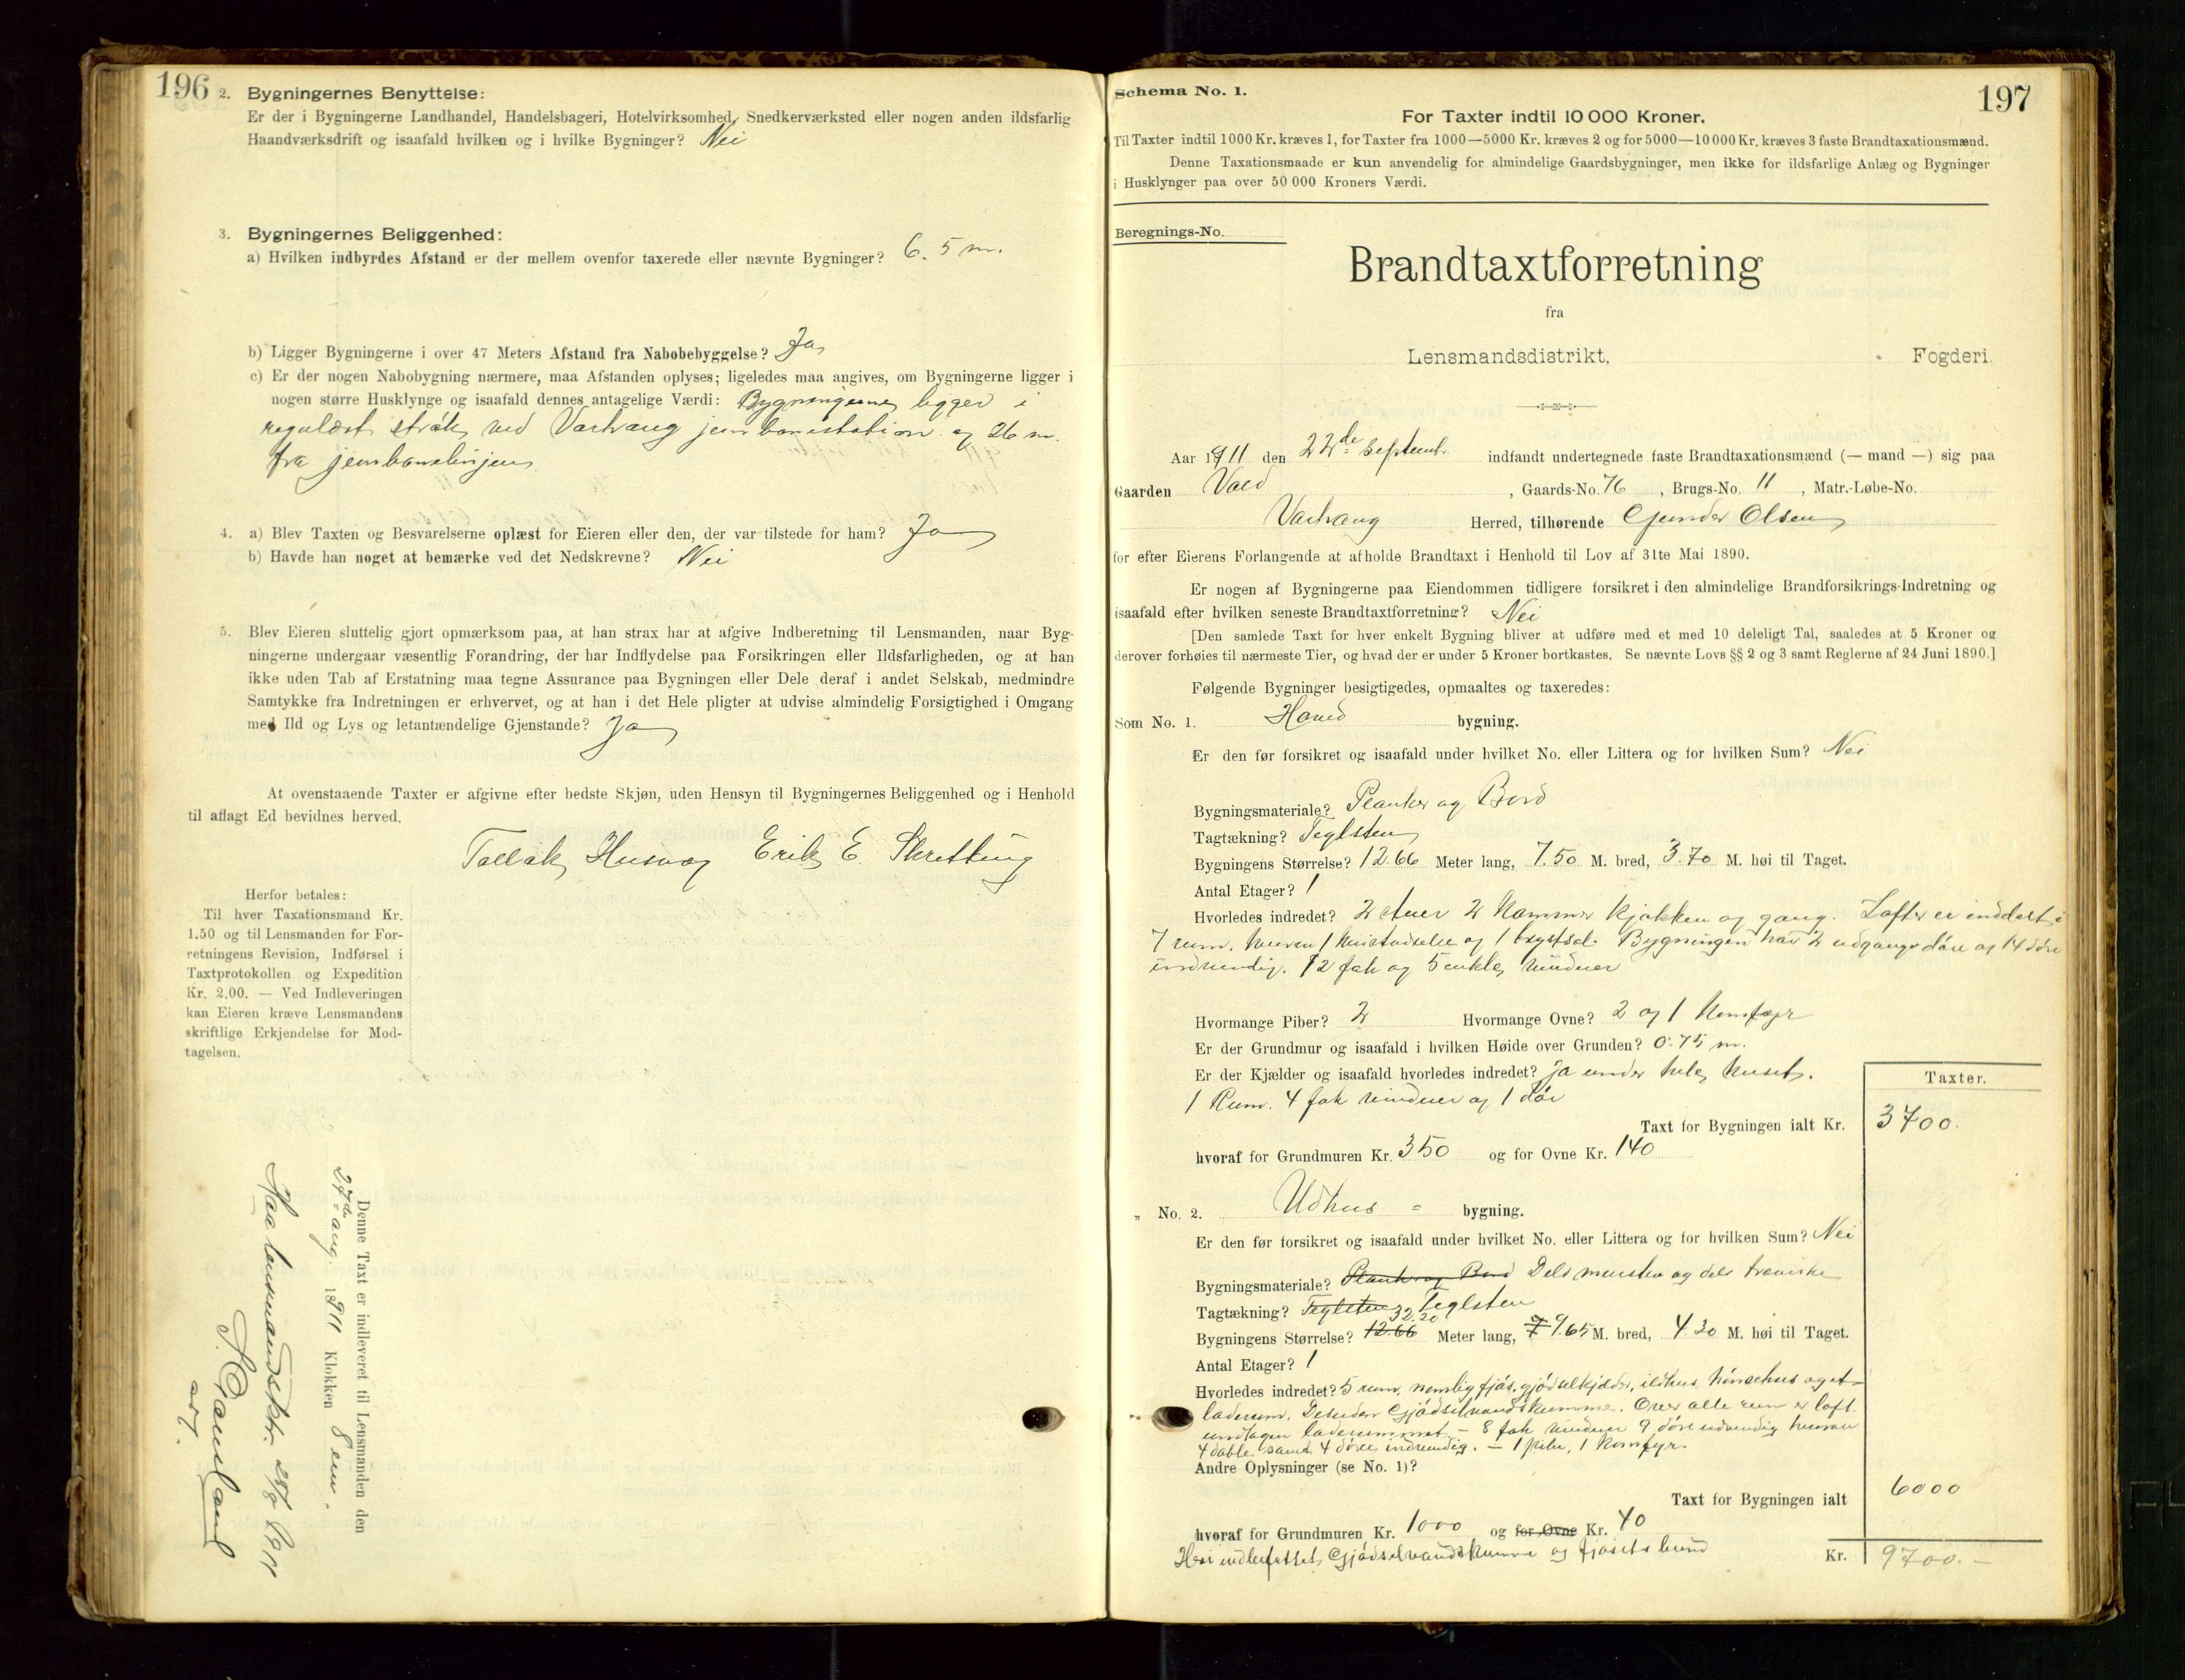 196
2. Bygningernes Benyttelse:
Er der i Bygningerne Landhandel, Handelsbageri, Hotelvirksomhed, Snedkerværksted eller nogen anden ildsfarlig
Haandværksdrift og isaafald hvilken og i hvilke Bygninger? Nei
3. Bygningernes Beliggenhed:
a) Hvilken indbyrdes Afstand er der mellem ovenfor taxerede eller nævnte Bygninger? 6.5 m.
b) Ligger Bygningerne i over 47 Meters Afstand fra Nabobebyggelse? Ja
c) Er der nogen Nabobygning nærmere, maa Afstanden oplyses; ligeledes maa angives, om Bygningerne ligger i
nogen større Husklynge og isaafald dennes antagelige Værdi: Bygningerne ligger i
regulært strøk ved Varhaug jernbanestation og 26 m.
fra jernbanelinjen
4. a) Blev Taxten og Besvarelserne oplæst for Eieren eller den, der var tilstede for ham? Ja
b) Havde han noget at bemærke ved det Nedskrevne? Nei
5. Blev Eieren sluttelig gjort opmærksom paa, at han strax har at afgive Indberetning til Lensmanden, naar Byg-
ningerne undergaar væsentlig Forandring, der har Indflydelse paa Forsikringen eller Ildsfarligheden, og at han
ikke uden Tab af Erstatning maa tegne Assurance paa Bygningen eller Dele deraf i andet Selskab, medmindre
Samtykke fra Indretningen er erhvervet, og at han i det Hele pligter at udvise almindelig Forsigtighed i Omgang
med Ild og Lys og letantændelige Gjenstande? Ja
At ovenstaaende Taxter er afgivne efter bedste Skjøn, uden Hensyn til Bygningernes Beliggenhed og i Henhold
til aflagt Ed bevidnes herved.
Tollak Husvæg Erik E. Skretting
Herfor betales:
Til hver Taxationsmand Kr.
1.50 og til Lensmanden for For-
retningens Revision, Indførsel i
Taxtprotokollen og Expedition
Kr. 2.00. — Ved Indleveringen
kan Eieren kræve Lensmandens
skriftlige Erkjendelse for Mod-
tagelsen.
Denne Taxt er indleveret til Lensmanden den
27de aug. 1911 Klokken 8 em.
Haa lensmandsktr. 28/8 1911
197
Schema No. 1.
For Taxter indtil 10 000 Kroner.
Til Taxter indtil 1000 Kr. kræves 1, for Taxter fra 1000—5000 Kr. kræves 2 og for 5000—10 000 Kr. kræves 3 faste Brandtaxationsmænd.
Denne Taxationsmaade er kun anvendelig for almindelige Gaardsbygninger, men ikke for ildsfarlige Anlæg og Bygninger
i Husklynger paa over 50 000 Kroners Værdi.
Beregnings-No.
Brandtaxtforretning
fra
Lensmandsdistrikt, Fogderi
Aar 1911 den 22de Septemb. indfandt undertegnede faste Brandtaxationsmænd (— mand —) sig paa
Gaarden , Gaards-No. 76 , Brugs-No. 11 , Matr.-Løbe-No.
Varhaug Herred, tilhørende Gunder Olsen
for efter Eierens Forlangende at afholde Brandtaxt i Henhold til Lov af 31te Mai 1890.
Er nogen af Bygningerne paa Eiendommen tidligere forsikret i den almindelige Brandforsikrings-Indretning og
isaafald efter hvilken seneste Brandtaxtforretning? Nei
[Den samlede Taxt for hver enkelt Bygning bliver at udføre med et med 10 deleligt Tal, saaledes at 5 Kroner og
derover forhøies til nærmeste Tier, og hvad der er under 5 Kroner bortkastes. Se nævnte Lovs §§ 2 og 3 samt Reglerne af 24 Juni 1890.]
Følgende Bygninger besigtigedes, opmaaltes og taxeredes:
Som No. 1. Hoved bygning.
Er den før forsikret og isaafald under hvilket No. eller Littera og for hvilken Sum? Nei
Bygningsmateriale? Planker og Bord
Tagtækning? Teglsten
Bygningens Størrelse? 12.66 Meter lang, 7.50 M. bred, 3.70 M. høi til Taget.
Antal Etager? 1
Hvorledes indredet? 2 stuer 2 Kammer Kjøkken og gang. Loftet er inddelt i
7 rum, hvoraf 1 og 1 Bygningen har 2 udgangsdøre og 14 døre
indvendig. 12 fak og 5 enkle vinduer
Hvormange Piber? 2 Hvormange Ovne? 2 og 1 Komfyr
Er der Grundmur og isaafald i hvilken Høide over Grunden? 0.75 m.
Er der Kjælder og isaafald hvorledes indredet? ja under hele huset.
1 Rum. 4 fak vinduer og 1 dør
Taxter.
Taxt for Bygningen ialt Kr. 3700.
hvoraf for Grundmuren Kr. 350 og for Ovne Kr. 140
„ No. 2. Udhus = bygning.
Er den før forsikret og isaafald under hvilket No. eller Littera og for hvilken Sum? Nei
Bygningsmateriale? Planker og Bord Dels mursten og dels træverke
Tagtækning? Teglsten Teglsten
Bygningens Størrelse? 12.66 32.20 Meter lang, 7 9.65 M. bred, 4.30 M. høi til Taget.
Antal Etager? 1
Hvorledes indredet? 5 rum, nemlig fjøs, gjødselkjelder, ildhus, hønsehus og et
laderum. Desuden Gjødselvandskumme. Over alle rum er loft
undtagen laderummet. — 8 fak vinduer 9 døre udvendig hvoraf
4 doble samt 4 døre indvendig. — 1 pibe, 1 Komfyr.
Andre Oplysninger (se No. 1)?
Taxt for Bygningen ialt 6000
hvoraf for Grundmuren Kr. 1000 og for Ovne Kr. 40
Heri indbefattet Gjødselvandskumme og fjøsets bund
Kr. 9700.—